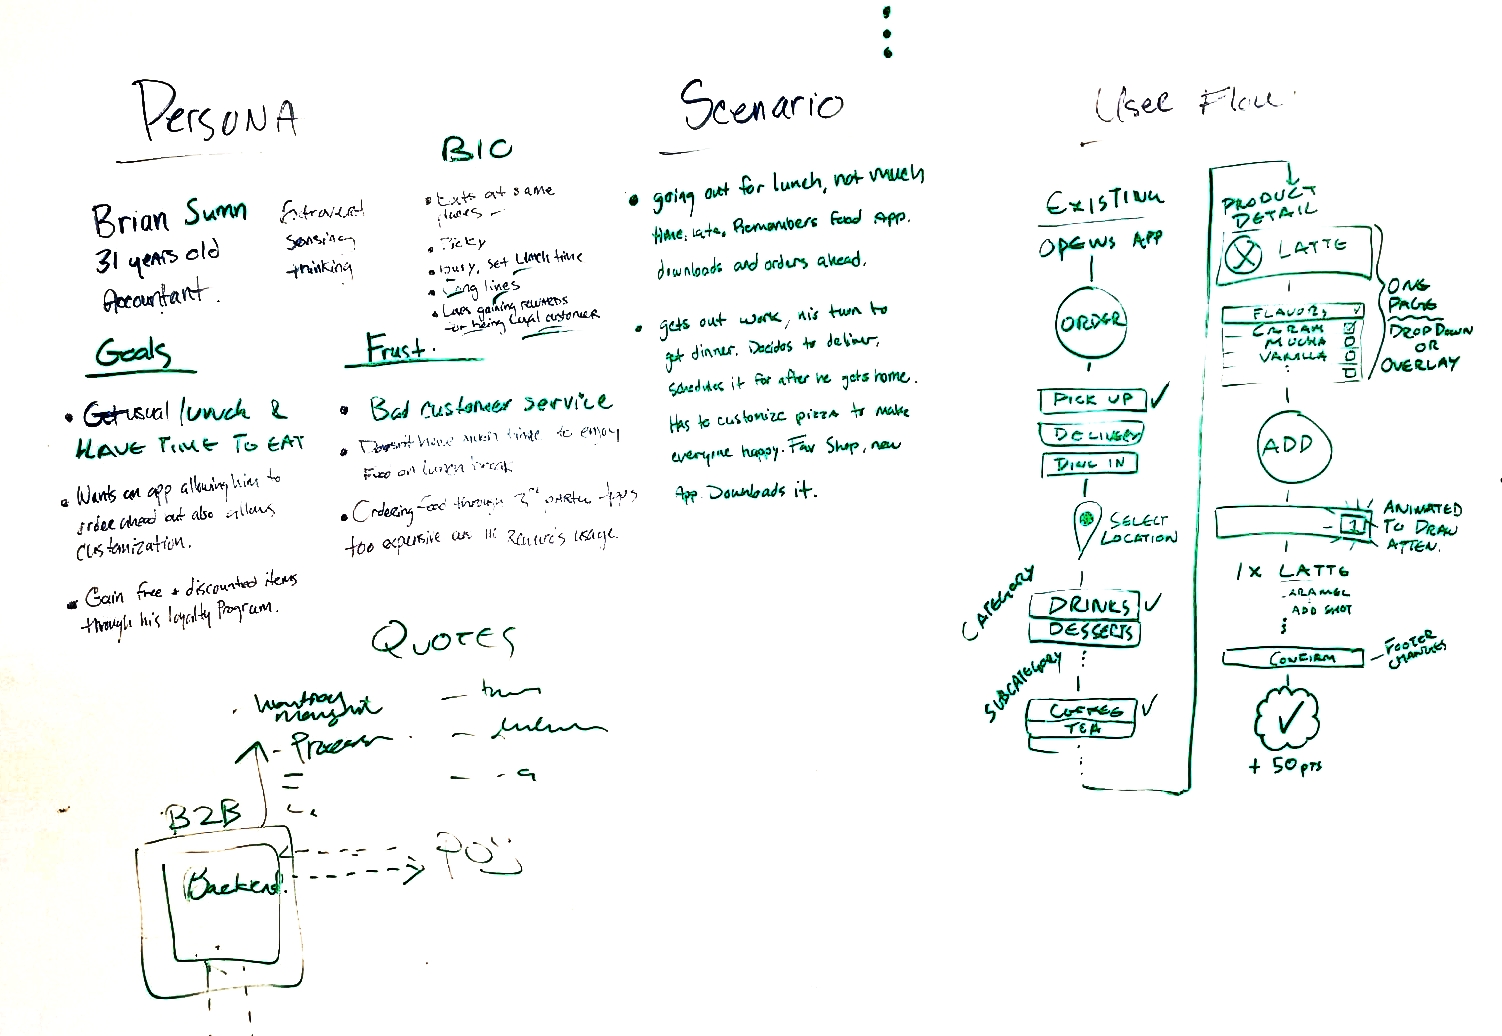 Persona
Brian Sumn
31 years old
Accountant.
Extrovert
Sensing
thinking
BIO
• Eats at same
places
• Picky
• busy, set lunch time
• Long lines
• Loves gaining rewards
for being loyal customer
Goals
• Get usual lunch &
HAVE TIME TO EAT
• Wants an app allowing him to
order ahead but also allows
customization.
• Gain free + discounted items
through his loyalty Program.
Frust.
• Bad customer service
• Doesn't have much time to enjoy
Food on lunch break
• Ordering food through 3rd party apps
too expensive usage.
QUOTES
- Process
B2B
Backend
Scenario
• going out for lunch, not much
time, late, Remembers Food App.
downloads and orders ahead.
• gets out work, his turn to
get dinner. Decides to deliver,
schedules it for after he gets home.
Has to customize pizza to make
everyone happy. Fav Shop, new
App. Downloads it.
User Flow
EXISTING
OPENS APP
ORDER
PICK UP ✓
DELIVERY
DINE IN
SELECT
LOCATION
CATEGORY
DRINKS ✓
DESSERTS
SUBCATEGORY
COFFEE ✓
TEA
PRODUCT
DETAIL
LATTE
FLAVORS
CARAM
MOCHA
VANILLA
ONE
PAGE
DROPDOWN
OR
OVERLAY
ADD
1
ANIMATED
TO DRAW
ATTEN.
1x LATTE
ARAMEL
ADD SHOT
CONFIRM
FOOTER
CHANGES
+ 50 pts